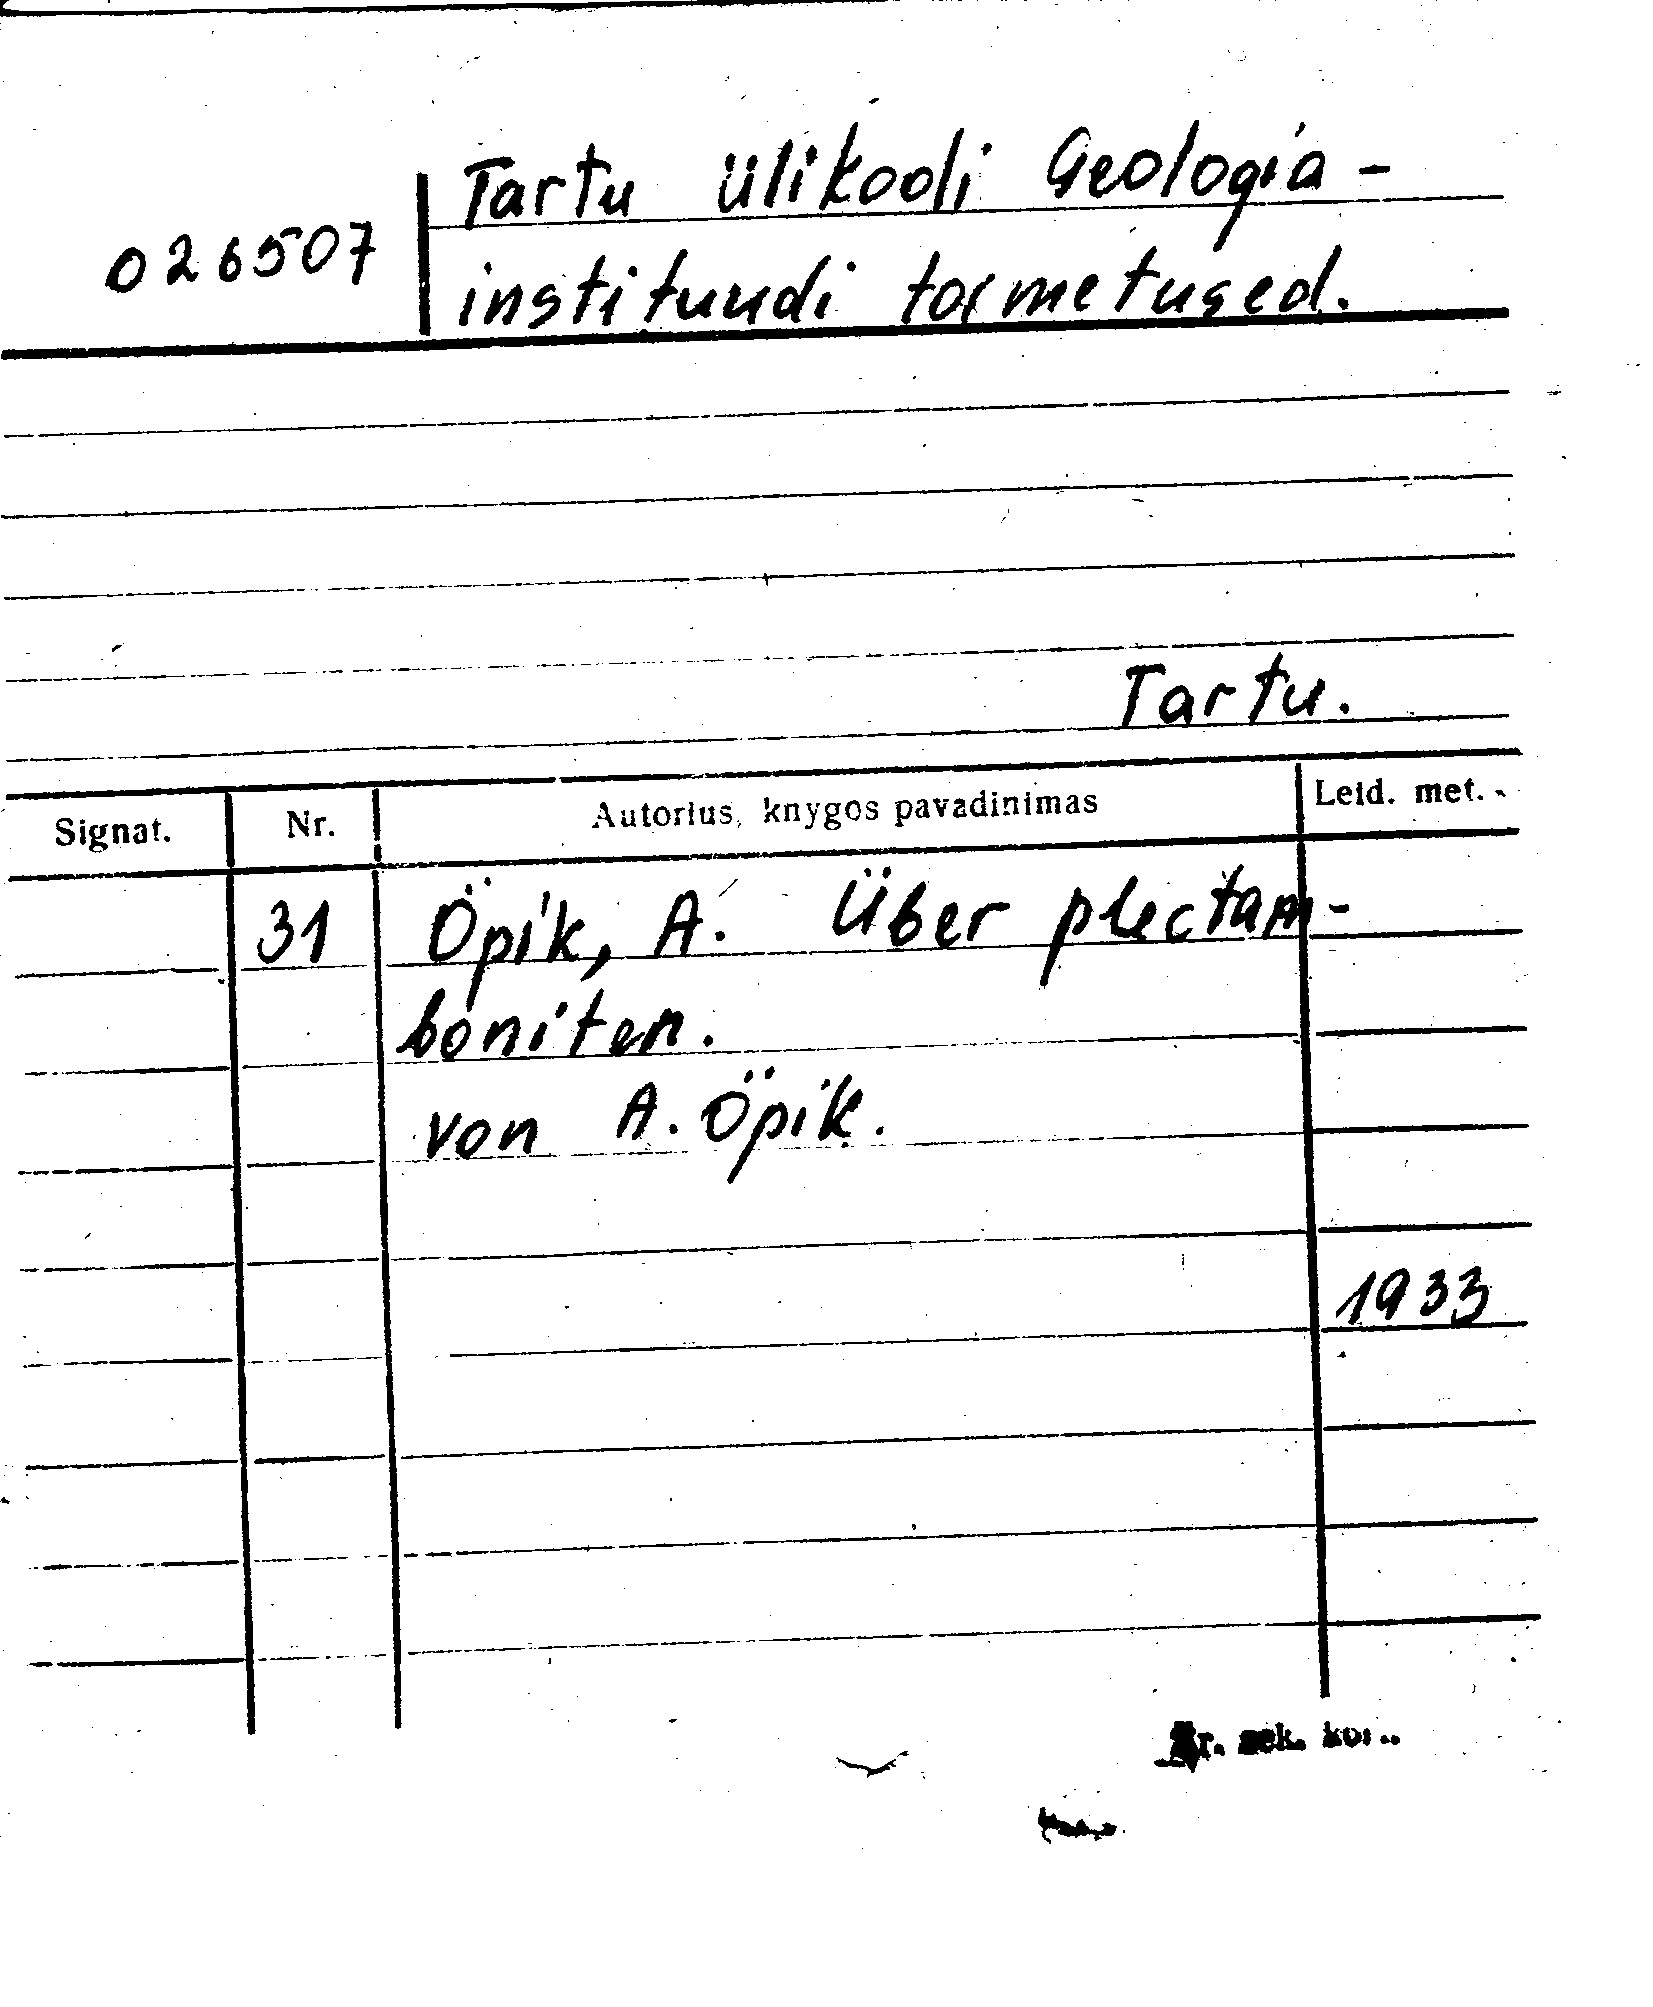 Tartu ülikooli Geologia-
026507
instituudi toimetused.
Tartu.
Signat. Nr. Autorius, knygos pavadinimas Leid. met.
31 Öpik, A. Über plectam-
boniten.
von A. Öpik.
1933
sek.